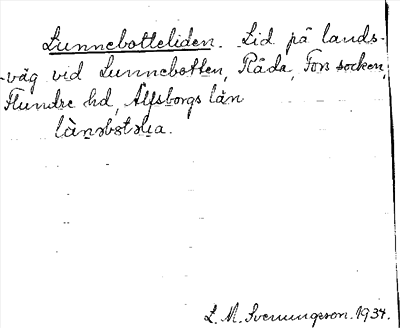 Lunnebotteliden. Lid på lands-
-väg vid Lunnebotten, Råda, Fors socken,
Flundre hd, Älfsborgs län
lànəbɵtəlia.
L. M. Svenungsson. 1934.